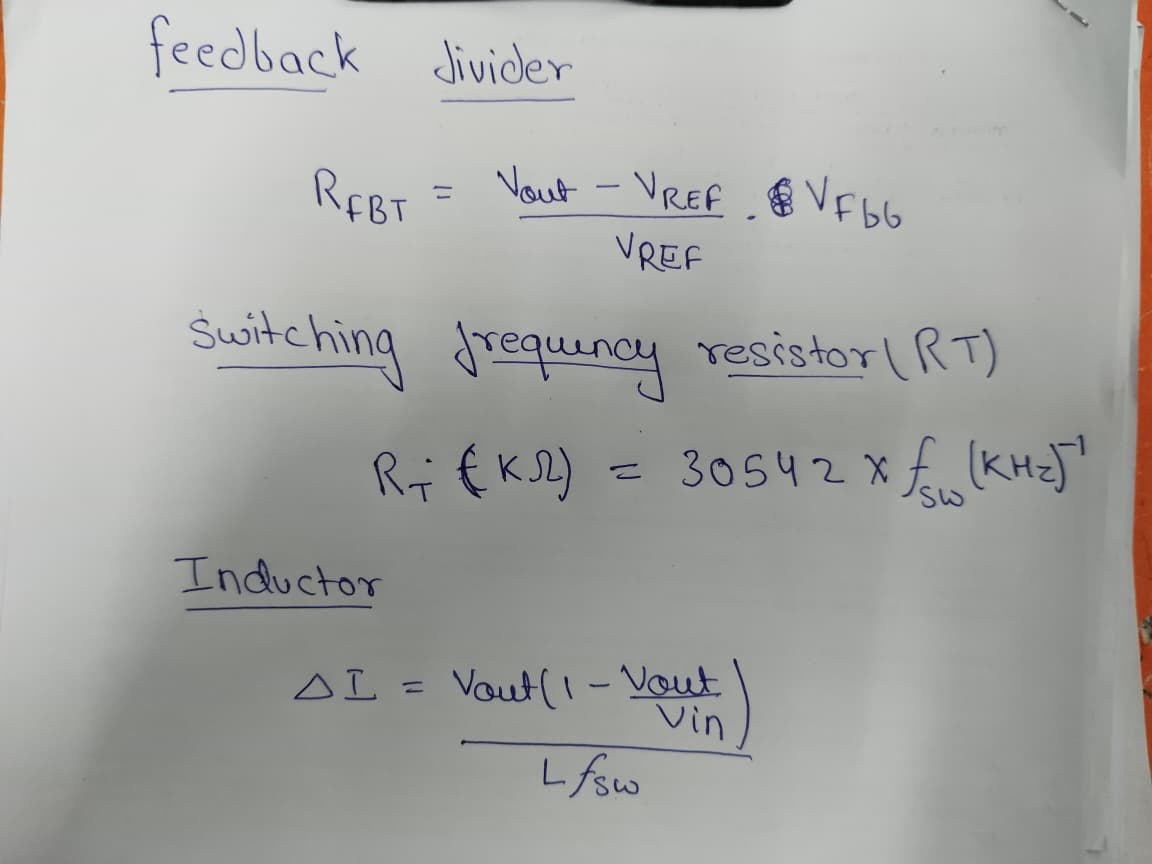 feedback divider
RFBT = Vout - VREF / VREF . VFbb
Switching frequency resistor (RT)
RT (KΩ) = 30542 x fsw (KHz)⁻¹
Inductor
ΔI = Vout(1 - Vout/Vin) / L fsw